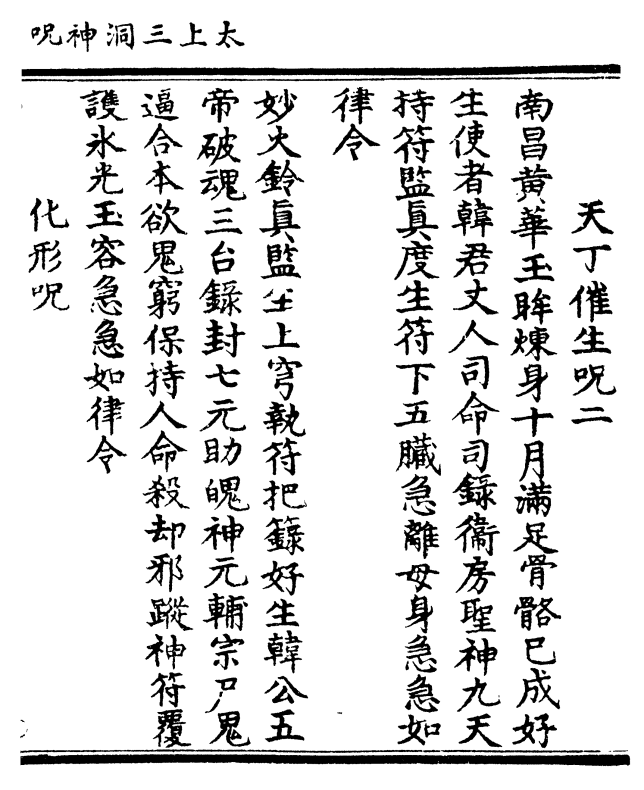 太上三洞神呪
天丁催生呪二
南昌黃華玉眸煉身十月滿足骨骼已成好
生使者韓君丈人司命司錄衞房聖神九天
持符監眞度生符下五臟急離母身急急如
律令
妙火鈴眞監坐上穹執符把籙好生韓公五
帝破魂三台錄封七元助魄神元輔宗尸鬼
逼合本欲鬼窮保持人命殺却邪蹤神符覆
護氷光玉容急急如律令
化形呪